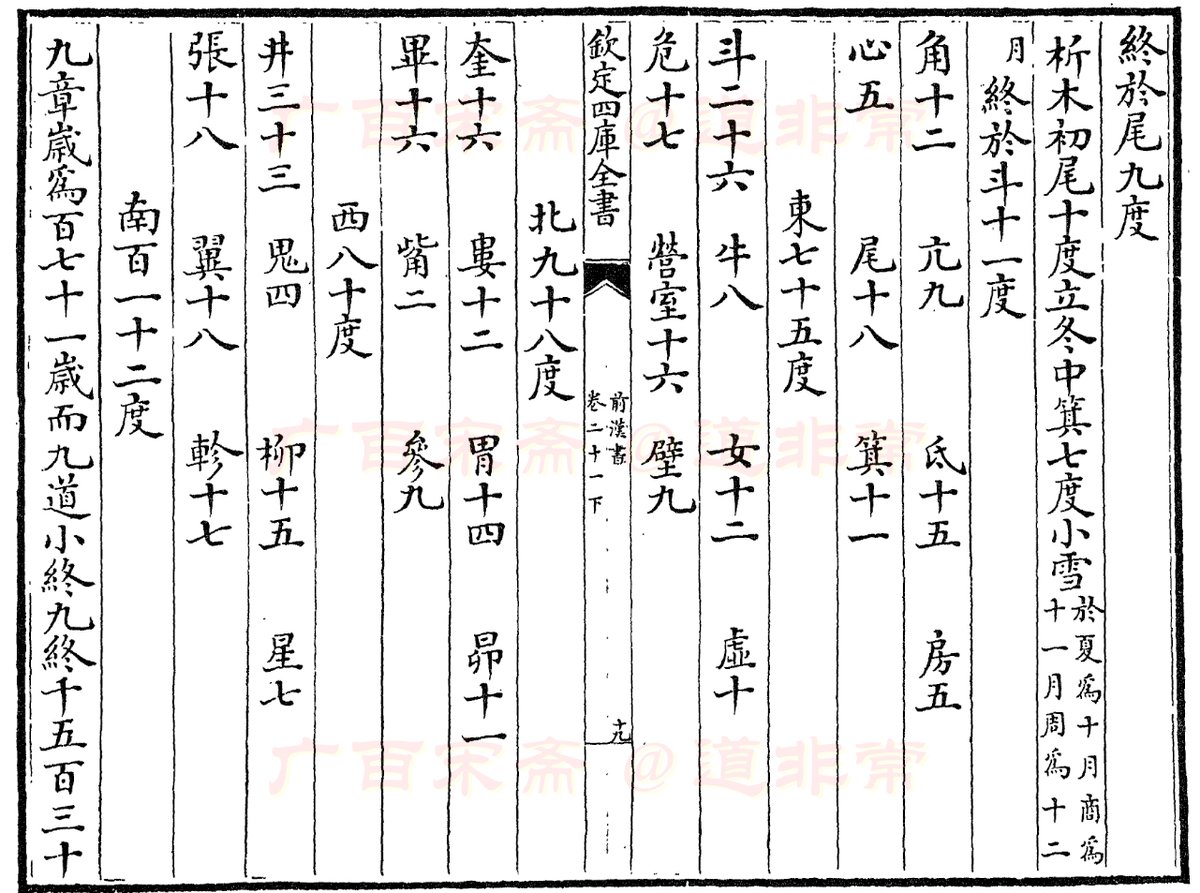 終於尾九度
析木初尾十度立冬中箕七度小雪於夏爲十月商爲十一月周爲十二
月終於斗十一度
角十二 亢九 氐十五 房五
心五 尾十八 箕十一
東七十五度
斗二十六 牛八 女十二 虛十
危十七 營室十六 壁九
北九十八度
欽定四庫全書 前漢書 卷二十一下 十九
奎十六 婁十二 胃十四 昴十一
畢十六 觜二 參九
西八十度
井三十三 鬼四 柳十五 星七
張十八 翼十八 軫十七
南百一十二度
九章歲爲百七十一歲而九道小終九終千五百三十
广百宋斋@道非常
广百宋斋@道非常
广百宋斋@道非常